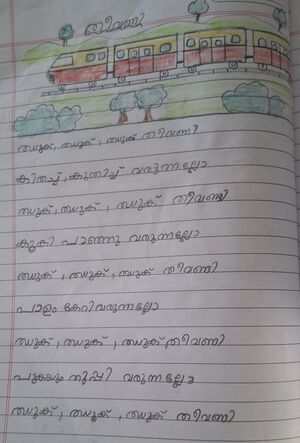 തീവണ്ടി
ഝുക്, ഝുക്, ഝുക് തീവണ്ടി
കിതച്ച്, കുതിച്ച് വരുന്നല്ലോ
ഝുക്, ഝുക്, ഝുക് തീവണ്ടി
കൂകി പാഞ്ഞു വരുന്നല്ലോ
ഝുക്, ഝുക്, ഝുക് തീവണ്ടി
പാളം കേറിവരുന്നല്ലോ
ഝുക്, ഝുക്, ഝുക് തീവണ്ടി
പുകയും തുപ്പി വരുന്നല്ലോ
ഝുക്, ഝുക്, ഝുക് തീവണ്ടി